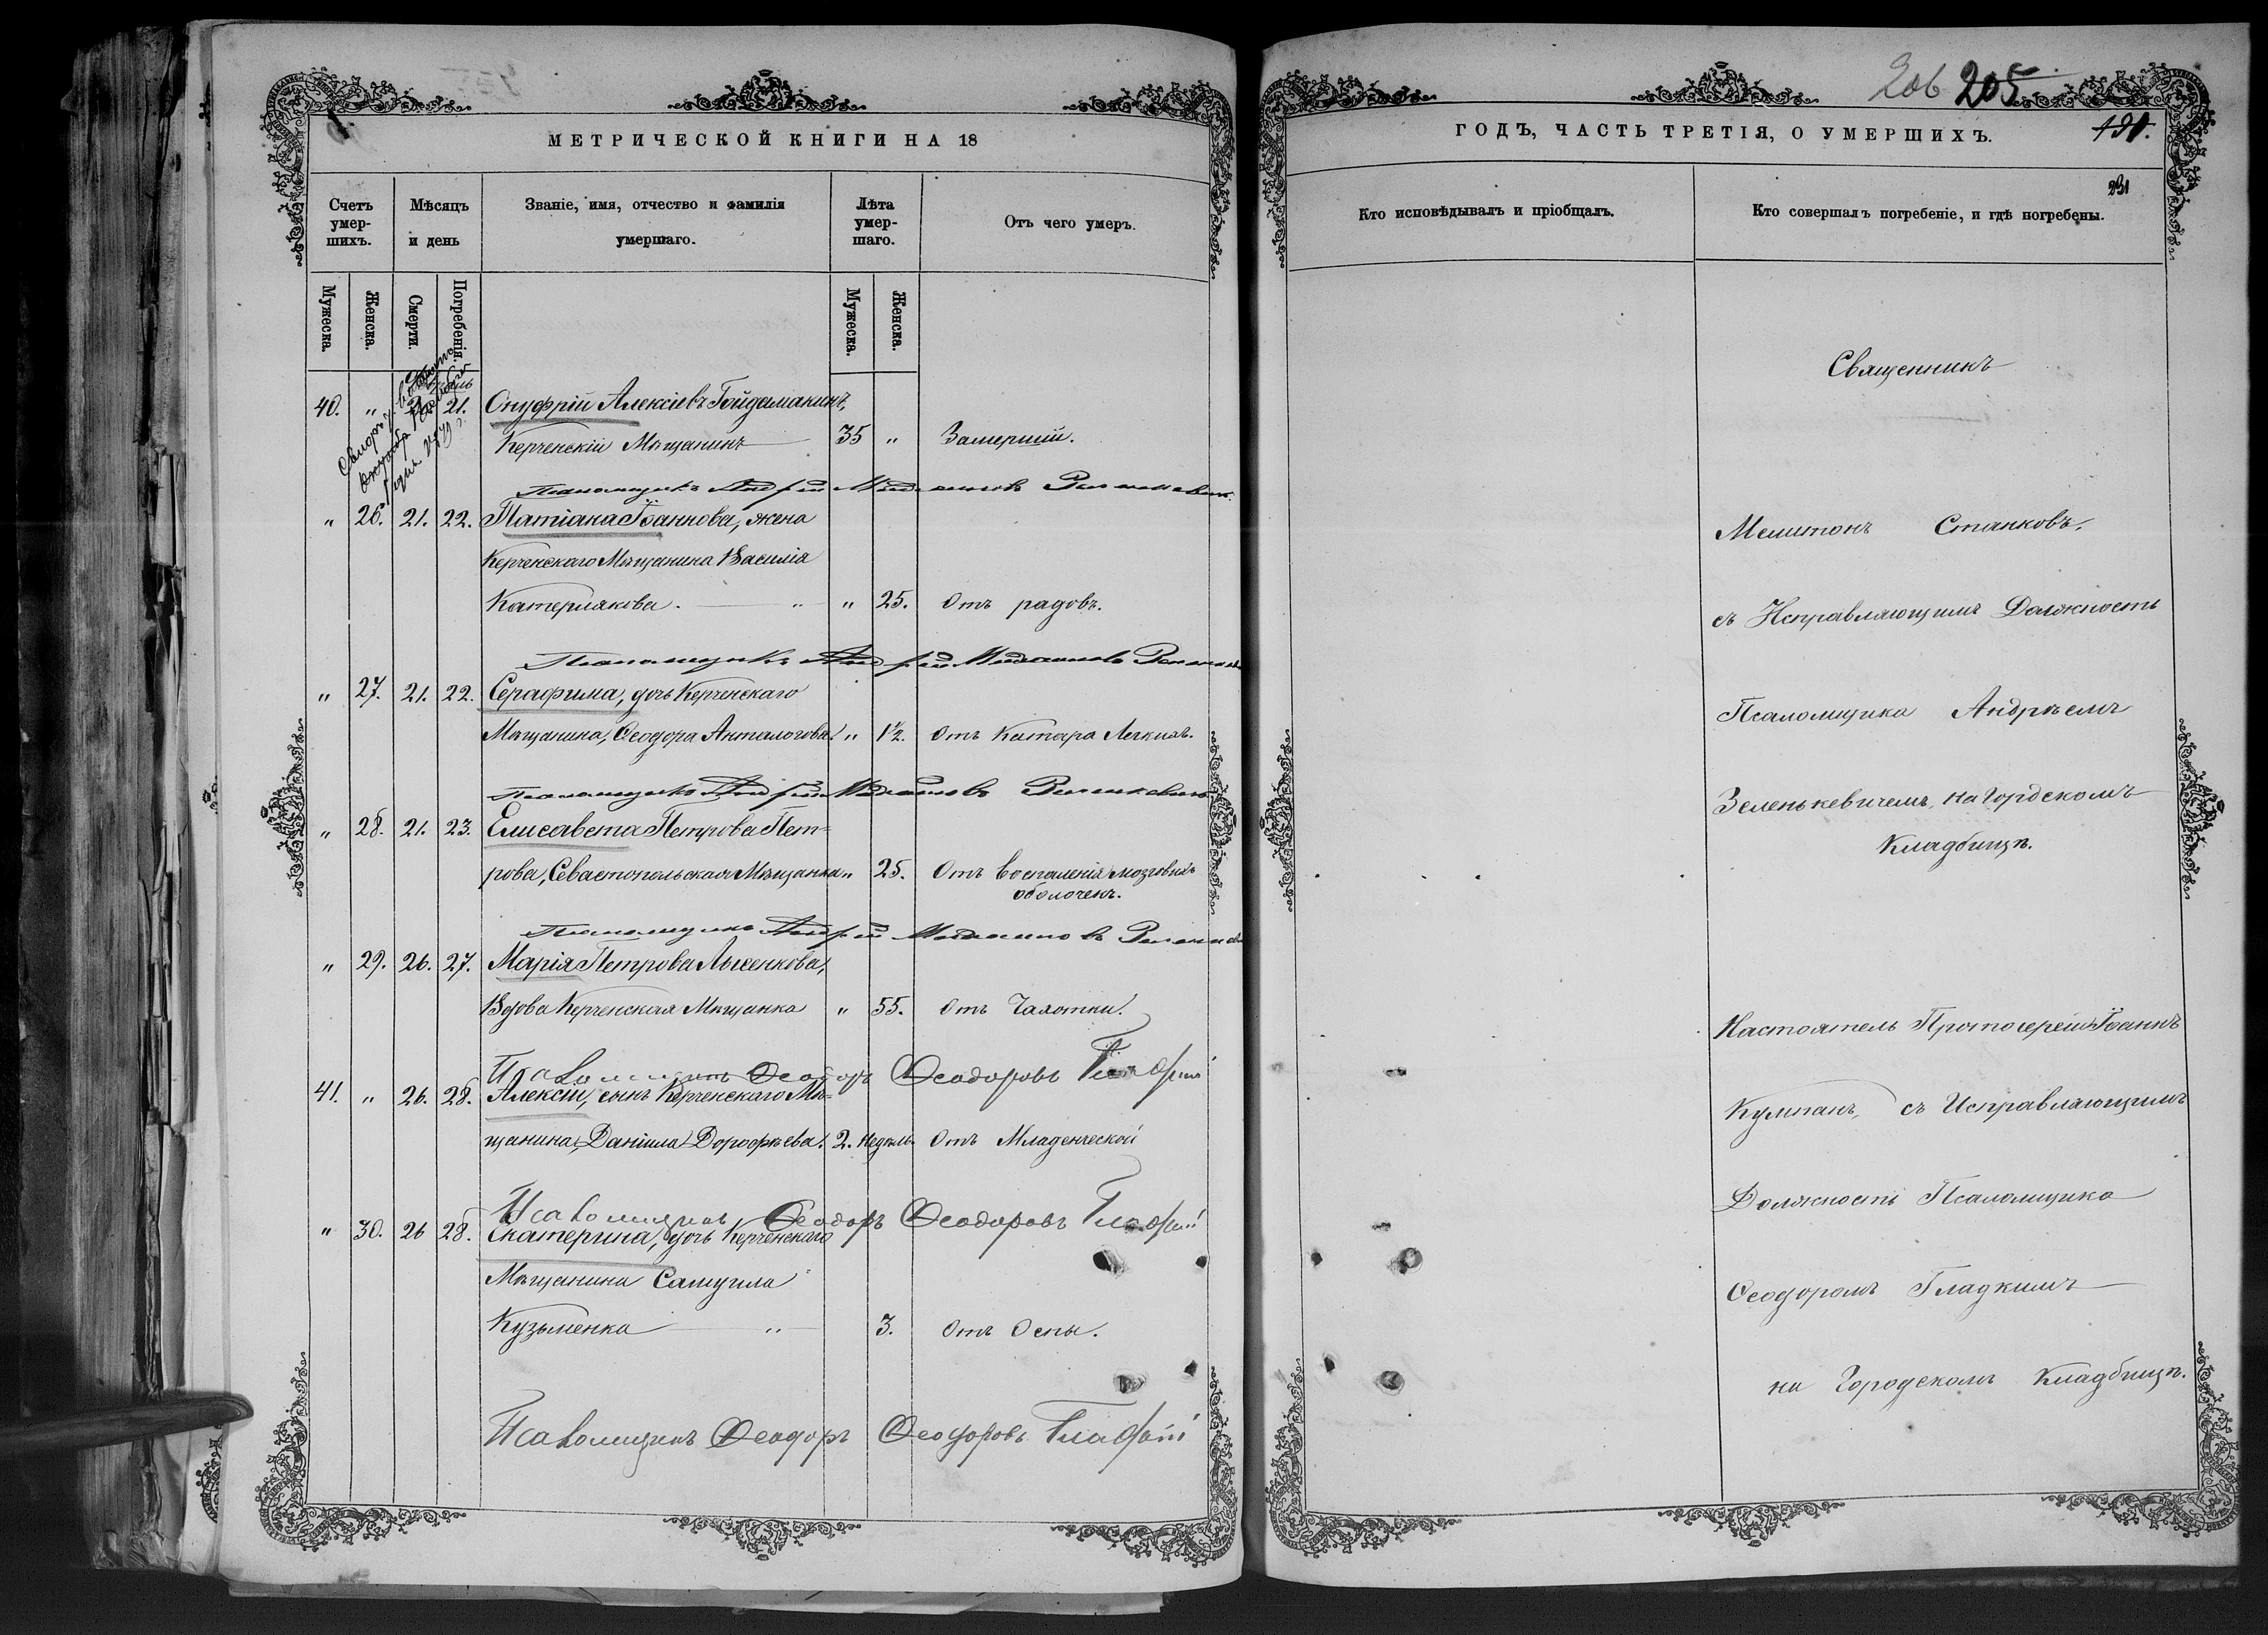 206 205
191.
231
МЕТРИЧЕСКОЙ КНИГИ НА 18
Счетъ умер-шихъ.
Мѣсяцъ и день
Званіе, имя, отчество и фамилія умершаго.
Лѣта умер-шаго.
Отъ чего умеръ.
Мужеска. Женска. Смерти. Погребенія. Мужеска. Женска.
40. " 21. Онуфрій Алексіевъ Гайдамакинъ,
Керченскій Мѣщанинъ 35 " Замерший.
Псаломщикъ Андрей
" 26. 21. 22. Татіана Іоаннова, жена
Керченскаго Мѣщанина Василія
Катерлякова. " " 25. Отъ родовъ.
Псаломщикъ Андрей
" 27. 21. 22. Серафима, дочь Керченскаго
Мѣщанина, Ѳеодора Анталогова. " 1½. Отъ Катара Легкихъ.
Псаломщикъ Андрей
" 28. 21. 23. Елисавета Петрова Пет-
рова, Севастопольская Мѣщанка " 25. Отъ воспаленія мозговыхъ
оболочекъ.
Псаломщикъ Андрей
" 29. 26. 27. Марія Петрова Лысенкова,
Вдова Керченская Мѣщанка " 55. Отъ Чахотки.
Псаломщикъ Ѳеодоръ Ѳеодоровъ Гладкій
41. " 26. 28. Алексій, сынъ Керченскаго Мѣ-
щанина, Даніила Дорофѣева. 2. недѣль. Отъ Младенческой
Псаломщикъ Ѳеодоръ Ѳеодоровъ Гладкій
" 30. 26 28. Екатерина, дочь Керченскаго
Мѣщанина Самуила
Кузьменка " 3. Отъ Оспы.
Псаломщикъ Ѳеодоръ Ѳеодоровъ Гладкій
ГОДЪ, ЧАСТЬ ТРЕТІЯ, О УМЕРШИХЪ.
Кто исповѣдывалъ и пріобщалъ.
Кто совершалъ погребеніе, и гдѣ погребены.
Священникъ
Мелитонъ Станковъ,
съ Исправляющимъ Должность
Псаломщика Андреемъ
Зеленькевичемъ, на Городскомъ
Кладбищѣ.
Настоятель Протоіерей Іоаннъ
Кумпанъ, съ Исправляющимъ
Должность Псаломщика
Ѳеодоромъ Гладкимъ
на Городскомъ Кладбищѣ.